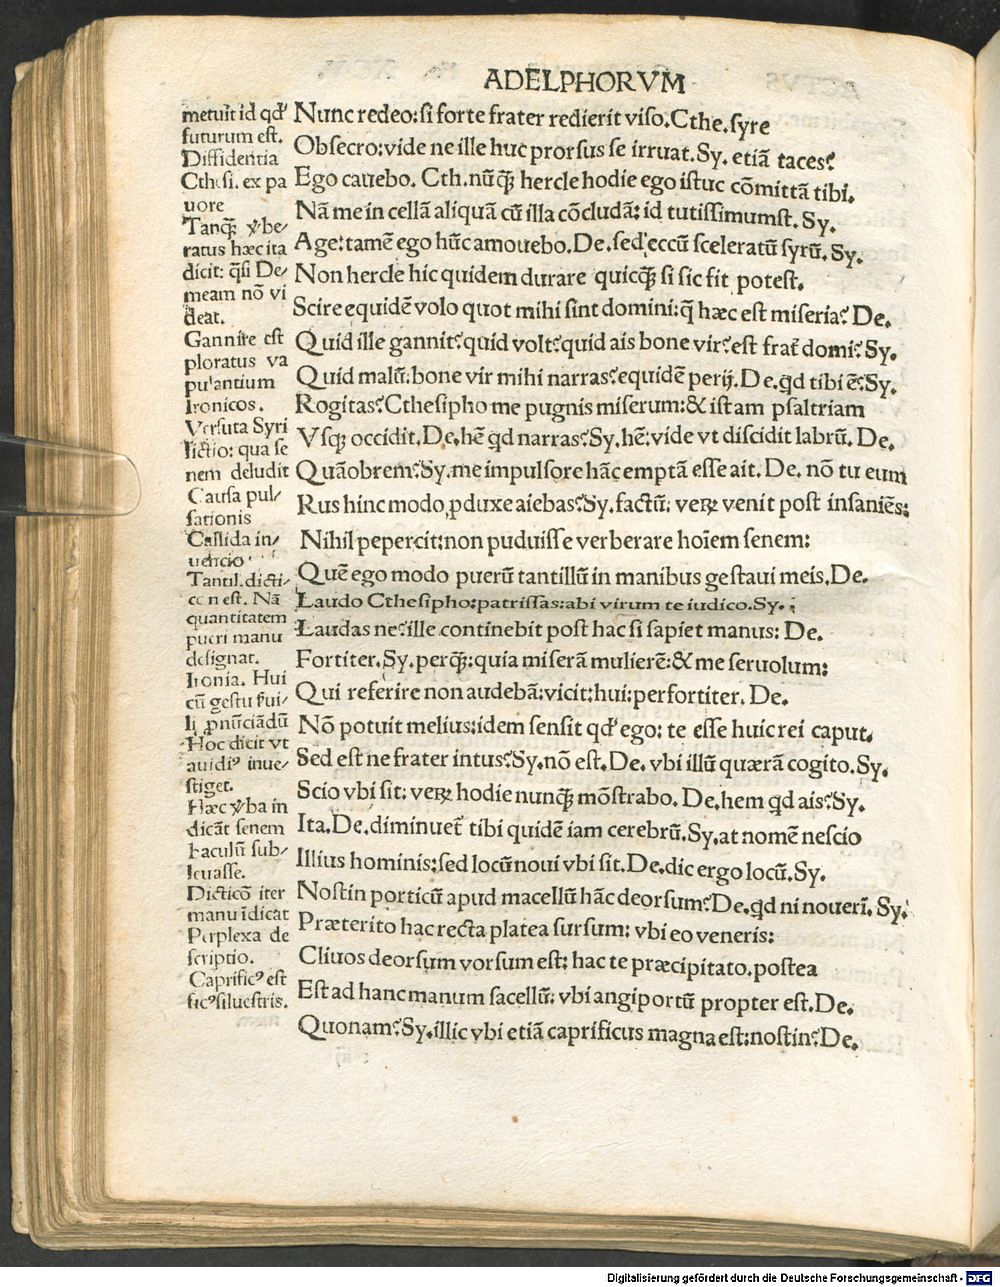 ADELPHORVM
metuit id qđ
futurum est.
Diffidentia
Cthesi. ex pa
uore
Tanꝗ̃ ỽbe/
ratus hæc ita
dicit: q̃si De/
meam nõ vi
deat.
Gannire est
ploratus va
pulantium
Ironicos.
Versuta Syri
fictio: qua se
nem deludit
Causa pul/
sationis
Callida in/
uencio
Tantil. dicti/
con est. Nã
quantitatem
pueri manu
designat.
Ironia. Hui
cũ gestu
li ꝓnũciãdũ
Hoc dicit vt
auidiꝰ inue/
stiget.
Hæc ỽba in
dicãt senem
baculũ sub/
leuasse.
Dicticõ iter
manu ĩdicat
Perplexa de
scriptio.
Caprificꝰ est
ficꝰ siluestris.
Nunc redeo: si forte frater redierit viso. Cthe. syre
Obsecro: vide ne ille huc prorsus se irruat. Sy. etiã taces?
Ego cauebo. Cth. nũꝗ̃ hercle hodie ego istuc cõmittã tibi.
Nã me in cellã aliquã cũ illa cõcludã: id tutissimumst. Sy.
Age: tamẽ ego hũc amouebo. De. sed eccũ sceleratũ syrũ. Sy.
Non hercle hic quidem durare quicꝗ̃ si sic fit potest.
Scire equidẽ volo quot mihi sint domini: q̃ hæc est miseria? De.
Quid ille gannit? quid volt? quid ais bone vir? est frat̃ domi? Sy.
Quid malũ: bone vir mihi narras? equidẽ perij. De. ꝗd tibi ẽ? Sy.
Rogitas? Cthesipho me pugnis miserum: & istam psaltriam
Vsqꝫ occidit. De. hẽ ꝗd narras? Sy. hẽ: vide vt discidit labrũ. De.
Quãobrem? Sy. me impulsore hãc emptã esse ait. De. nõ tu eum
Rus hinc modo ꝓduxe aiebas? Sy. factũ: veꝝ venit post insaniẽs:
Nihil pepercit: non puduisse verberare hoĩem senem:
Quẽ ego modo puerũ tantillũ in manibus gestaui meis. De.
Laudo Cthesipho: patrissas: abi virum te iudico. Sy.
Laudas ne? ille continebit post hac si sapiet manus: De.
Fortiter. Sy. perꝗ̃: quia miserã mulierẽ: & me seruolum:
Qui referire non audebã: vicit: hui: perfortiter. De.
Nõ potuit melius: idem sensit qđ ego: te esse huic rei caput.
Sed est ne frater intus? Sy. nõ est. De. vbi illũ quærã cogito. Sy.
Scio vbi sit: veꝝ hodie nunꝗ̃ mõstrabo. De. hem ꝗd ais? Sy.
Ita. De. diminuet̃ tibi quidẽ iam cerebrũ. Sy. at nomẽ nescio
Illius hominis: sed locũ noui vbi sit. De. dic ergo locũ. Sy.
Nostin porticũ apud macellũ hãc deorsum? De. ꝗd ni nouerĩ. Sy.
Præterito hac recta platea sursum: vbi eo veneris:
Cliuos deorsum vorsum est: hac te præcipitato. postea
Est ad hanc manum sacellũ: vbi angiportũ propter est. De.
Quonam? Sy. illic vbi etiã caprificus magna est: nostin? De.
Digitalisierung gefördert durch die Deutsche Forschungsgemeinschaft - DFG